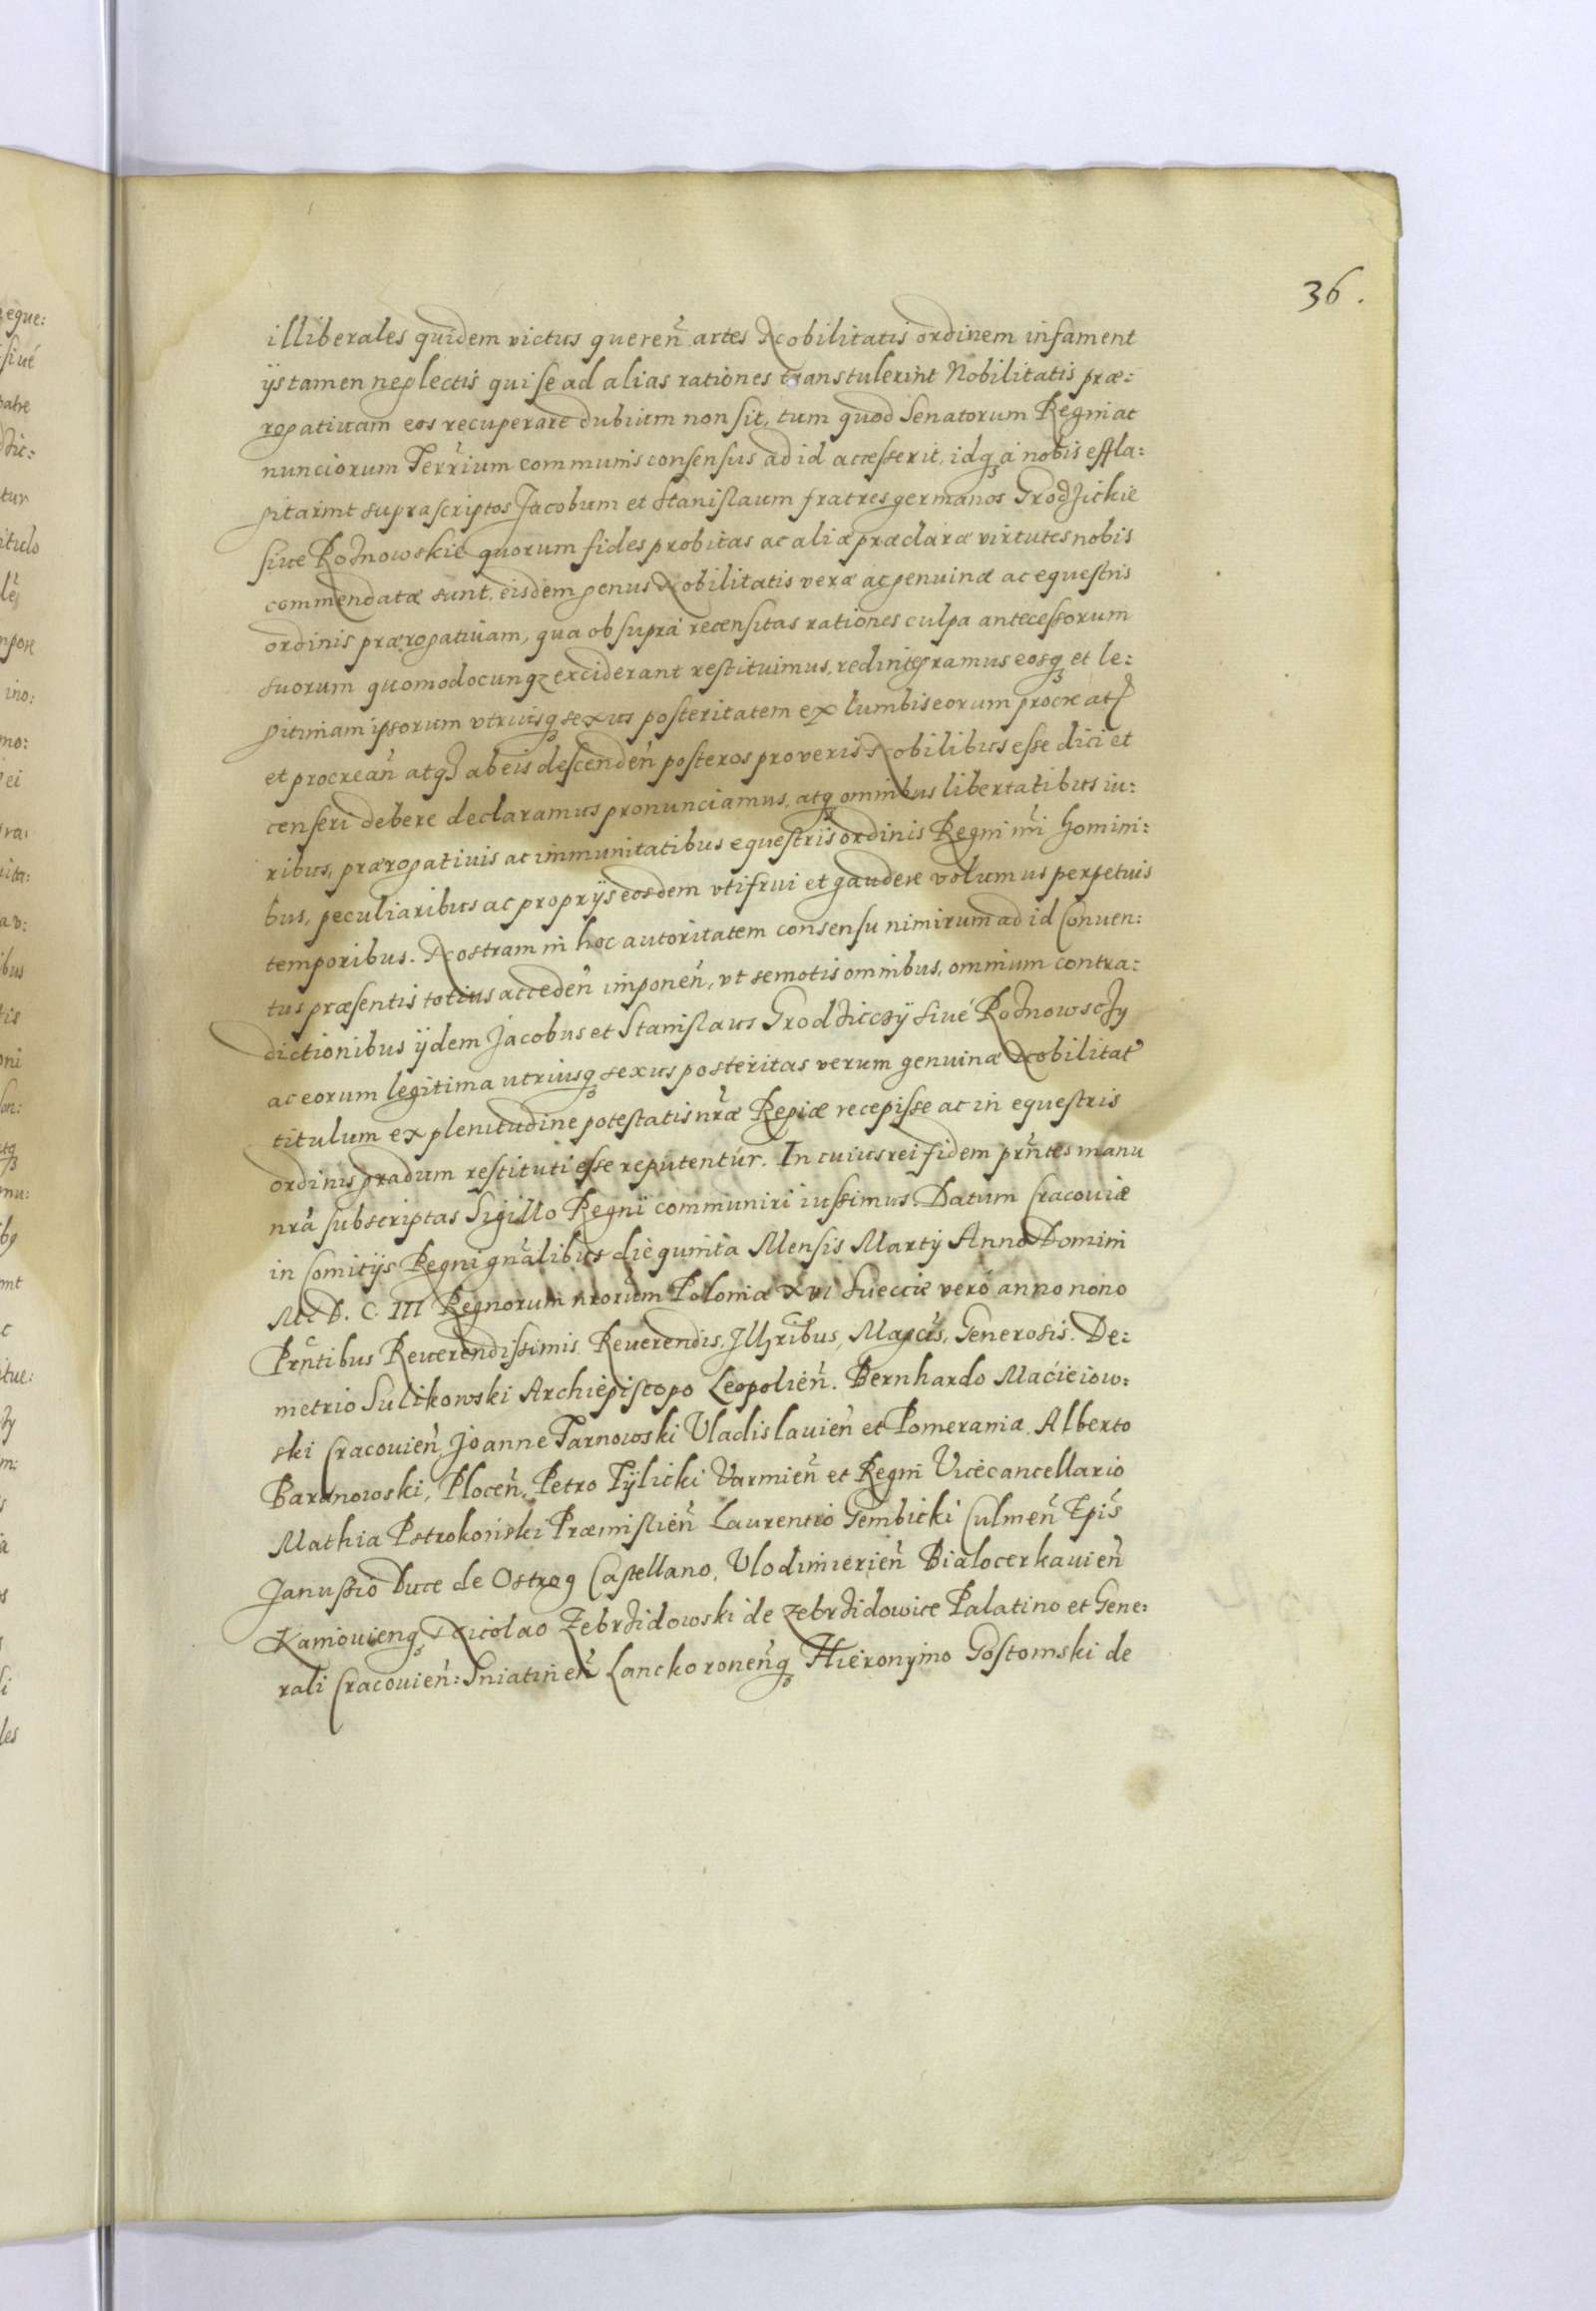 36.
illiberales quidem victus queren̄ artes Nobilitatis ordinem infament
ijs tamen neglectis qui se ad alias rationes transtulerint Nobilitatis præ:
rogatiuam eos recuperare dubium non sit, tum quod Senatorum Regni ac
nunciorum Terr̄ium communis consensus ad id accesserit, idq; à nobis effla:
gitarint suprascriptos Jacobum et Stanislaum fratres germanos Grodzickie
siue Rożnowskie quorum fides probitas ac aliæ præclaræ virtutes nobis
commendatæ sunt, eisdem genus Nobilitatis veræ ac genuinæ ac equestris
ordinis prærogatiuam, qua ob supra recensitas rationes culpa antecessorum
suorum quomodocunq; exciderant restituimus, redintegramus eosq; et le:
gitimam ipsorum vtriusq; sexus posteritatem ex lumbis eorum procreat
et procrean̄ atq; ab eis descenden̄ posteros pro veris Nobilibus esse dici et
censeri debere declaramus pronunciamus, atq; omnibus libertatibus iu:
ribus, prærogatiuis ac immunitatibus equestris ordinis Regni nr̄i homini:
bus, peculiaribus ac proprijs eosdem vti frui et gaudere volumus perpetuis
temporibus. Nostram in hoc autoritatem consensu nimirum ad id Conuen:
tus præsentis totius acceden̄ imponen̄, vt semotis omnibus, omnium contra:
dictionibus ijdem Jacobus et Stanislaus Grodziccÿ siué Rożnowscÿ
ac eorum legitima utriusq; sexus posteritas verum genuinæ Nobilitat
titulum ex plenitudine potestatis nr̄æ Regiæ recepisse ac in equestris
ordinis gradum restituti esse reputentur. In cuius rei fidem prn̄tes manu
nr̄a subscriptas Sigillo Regni communiri iussimus. Datum Cracouiæ
in Comitijs Regni gn̄alibus die quinta Mensis Martij Anno Domini
M. D. C. III Regnorum nrorum Poloniæ XVI Sueciæ vero anno nono
Prn̄tibus Reuerendissimis Reuerendis, Jllr̄ibus, Magcis, Generosis. De:
metrio Sulikowski Archiepiscopo Leopolien̄. Bernhardo Macieiow:
ski Cracouien̄, Joanne Tarnowski Vladislauien̄ et Pomeraniæ, Alberto
Baranowski, Plocen̄, Petro Tÿlicki Varmien̄ et Regni Vicecancellario
Mathia Pstrokoński Præmislien̄ Laurentio Gembicki Culmen̄ Epīs
Janussio Duce de Ostrog Castellano, Vlodimierien̄ Bialocerkauien̄
Kaniouienq; Nicolao Zebrzidowski de Zebrzidowice Palatino et Gene:
rali Cracouien̄: Sniatinen̄ Lanckoronen̄q; Hieronymo Gostomski de